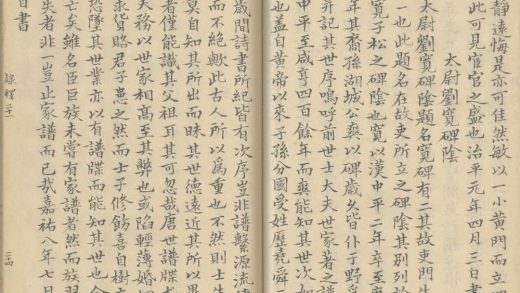 靜遠悔是亦可佳然敏以一小黃門而立四
此可見宦官之盛也治平元年四月三日書
太尉劉寬碑陰
太尉劉寬碑陰題名寬碑有二其故吏門生
一也此題名在故吏所立之碑陰其別列於
寬子松之碑陰也寬以漢中平二年卒至唐
年其裔孫湖城公爽以碑歲久皆仆于野
并記其世序嗚呼前世士大夫世家著之譜
中平至咸亨四百餘年而爽能知其世次如
也蓋自黃帝以來子孫分國受姓歷堯舜三
歲間詩書所紀皆有次序豈非譜繫源流傳
而不絕歟此古人所以為重也不然則士生
莫自知其所出而昧其世德遠近其所以異
者僅能識其父祖耳其可忽哉唐世譜牒尤
夫務以世家相高至其弊也或陷輕薄婚姻
求貨賂君子患之然而士子修飭喜自樹立
恐墜其世業亦以有譜牒而能知其世也今
亡矣雖名臣巨族未嘗有家譜者然而族習
失者非一豈止家譜而已哉嘉祐八年七月
日書